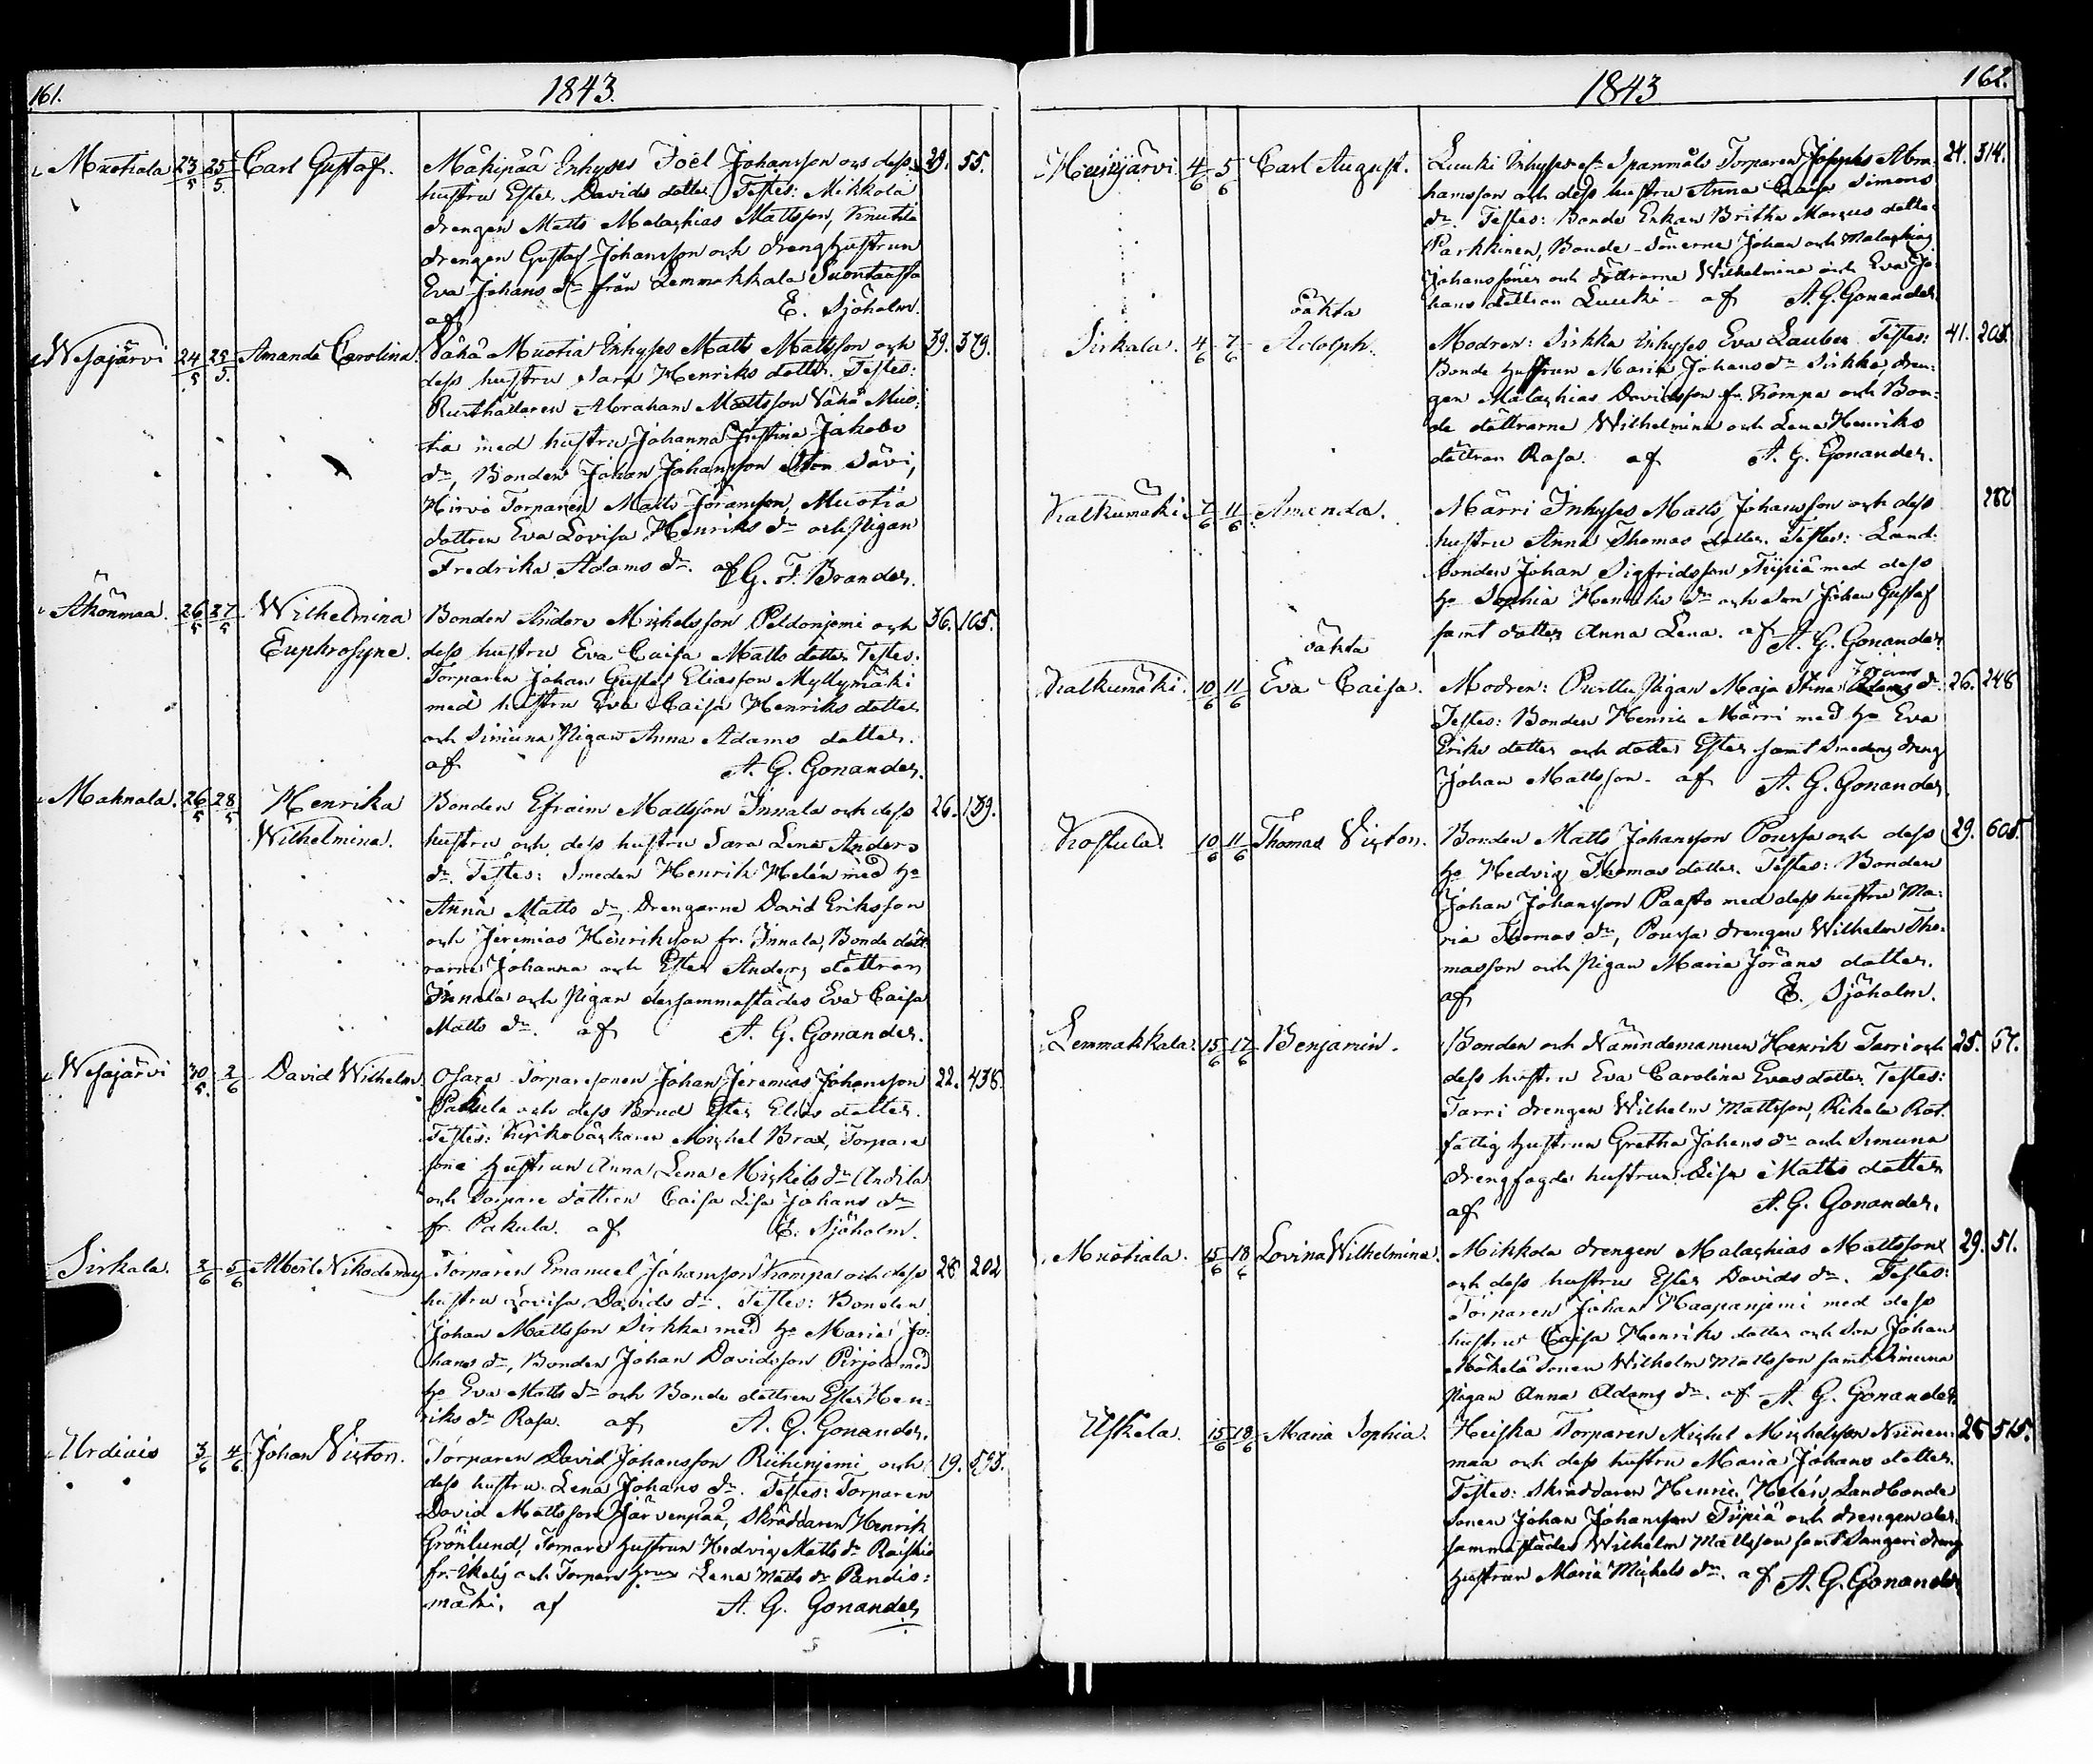 161.
1843.
Muotiala 23/5 25/5 Carl Gustaf. Mäkipää Inhyses Joël Johansson och dess 39. 55.
hustru Ester Davids dotter. Testes: Mikkola
drengen Matts Malachias Mattsson, Knutila
drengen Gustaf Johansson och drenghustrun
Eva Johans dr från Lemmakkala Suontausta
af E. Sjöholm.
Wesajärvi 24/5 25/5 Amanda Carolina. Vähä Muotia Inhyses Matts Mattsson och 39. 379.
dess hustru Sara Henriks dotter. Testes:
Rusthållaren Abraham Mattsson Vähä Muo:
tia med hustru Johanna Justina Jakobs
dr, Bonden Johan Johansson Sävi,
Hirvo Torparen Matts Jöransson, Muotia
dottren Eva Lovisa Henriks dr och Pigan
Fredrika Adams dr. af G. F. Brander.
Ahönmaa. 26/5 27/5 Wilhelmina Bonden Anders Michelsson Peldonjemi och 36. 165.
Euphrosyne. dess hustru Eva Caisa Matts dotter Testes:
Torparen Johan Gustaf Eliasson Myllymäki
med hustru Eva Caisa Henriks dotter
och Simuna Pigan Anna Adams dotter.
af A. G. Gonander.
Mahnala. 26/5 28/5 Henrika Bonden Efraim Mattsson Innala och dess 26. 139.
Wilhelmina. hustru och dess hustru Sara Lena Anders
dr. Testes: Smeden Henrik Helén med ho
Anna Matts dr, Drengarne David Eriksson
och Jeremias Henriksson fr. Innala, Bonde dött
rarne Johanna och Ester Anders döttrar
Innala och Pigan dersammastädes Eva Caisa
Matts dr. af A. G. Gonander.
Wesajärvi 30/5 2/6 David Wilhelm. Osara Torparesonen Johan Jeremias Johansson 22. 438.
Pakula och dess Brud Ester Elias dotter.
Testes: Michel Brax, Torpare
sone hustrun Anna Lena Michels dr Andila
och Torpare dottren Caisa Lisa Johans dr
fr. Pakula. af E. Sjöholm.
Sirkala. 2/6 5/6 Albert Nikodemus Torparen Emanuel Johansson Kompa och dess 28 202
hustru Lovisa Davids dr. Testes: Bonden
Johan Mattsson Sirkka med ho Maria Jo:
hans dr, Bonden Johan Davidsson Pirjola med
ho Eva Matts dr och Bonde dottren Ester Hen:
riks dr Rasa. af A. G. Gonander.
Urdiais 3/6 4/6 Johan Victor. Torparen David Johansson Riihinjemi och 19. 595.
dess hustru Lena Johans dr. Testes: Torparen
David Mattsson Järvenpää, Skräddaren Henrik
Grönlund, Torpare hustrun Hedvig Matts dr
fr. och Torpare Lena Matts dr Pandis:
mäki. af A. G. Gonander
1843
162.
4/6 5/6 Carl August. Luuki Inhyses Torparen Josephs Abra: 24. 314.
hamsson och dess hustru Anna Caisa Simons
dr. Testes: Bonde Enkan Britha Marcus dotter
Parkkinen, Bonde-Sönerne Johan och Malachias
Johanssöner och döttrarne Wilhelmina och Eva Jo:
hans döttrar Luuki af A. G. Gonander.
oäkta
Sirkala. 4/6 7/6 Adolph. Modren: Sirkka Inhyses Eva Testes: 41. 203.
Bonde hustrun Maria Johans dr Sirkka, dren:
gen Malachias Davidsson fr. Kompa och Bon:
de döttrarne Wilhelmina och Lena Henriks
döttrar Rasa. af A. G. Gonander.
Kalkumäki. 7/6 11/6 Amanda. Märri Inhyses Matts Johansson och dess 280
hustru Anna Thomas dotter. Testes: Land:
bonden Johan Sigfridsson Tiipiä med dess
ho Sophia Henriks dr och Son Johan Gustaf
samt dotter Anna Lena. af A. G. Gonander
oäkta
Kalkumäki. 10/6 11/6 Eva Caisa. Modren: Pigan Maja Stina Jörans dr 26. 248
Testes: Bonden Henric Märri med ho Eva
Eriks dotter och dotter Ester samt Smedens dreng
Johan Mattsson. af A. G. Gonander.
Kostula. 10/6 11/6 Thomas Victor. Bonden Matts Johansson Poussa och dess 29. 605.
ho Hedvig Thomas dotter. Testes: Bonden
Johan Johansson Paasto med dess hustru Ma:
ria Thomas dr, Poussa drengen Wilhelm Tho:
masson och Pigan Maria Jörans dotter.
af E. Sjöholm.
Lemmakkala. 15/6 17/6 Benjamin. Bonden och Nämndemannen Henrik Tarri och 25. 57.
dess hustru Eva Carolina Evas dotter. Testes:
Tarri drengen Wilhelm Mattsson, Rikala Rot.
fattig hustrun Gretha Johans dr och Simuna
drengfogde hustrun Lisa Matts dotter
af A. G. Gonander.
Muotiala. 15/6 18/6 Lovina Wilhelmina. Mikkola drengen Malachias Mattsson 29. 51.
och dess hustru Ester Davids dr. Testes:
Torparen Johan Haapanjemi med dess
hustru Caisa Henriks dotter och Son Johan
Mäkelä Sonen Wilhelm Mattsson samt Simuna
Pigan Anna Adams dr. af A. G. Gonander.
Uskela. 15/6 18/6 Maria Sophia. Heiska Torparen Michel Michelsson Niinen: 26 515.
maa och dess hustru Maria Johans dotter.
Testes: Skräddaren Henric Helén, Landbonde
Sonen Johan Johansson Tiipiä och drengen der:
sammastädes Wilhelm Mattsson samt Sangeri dreng
hustrun Maria Michels dr. af A. G. Gonander